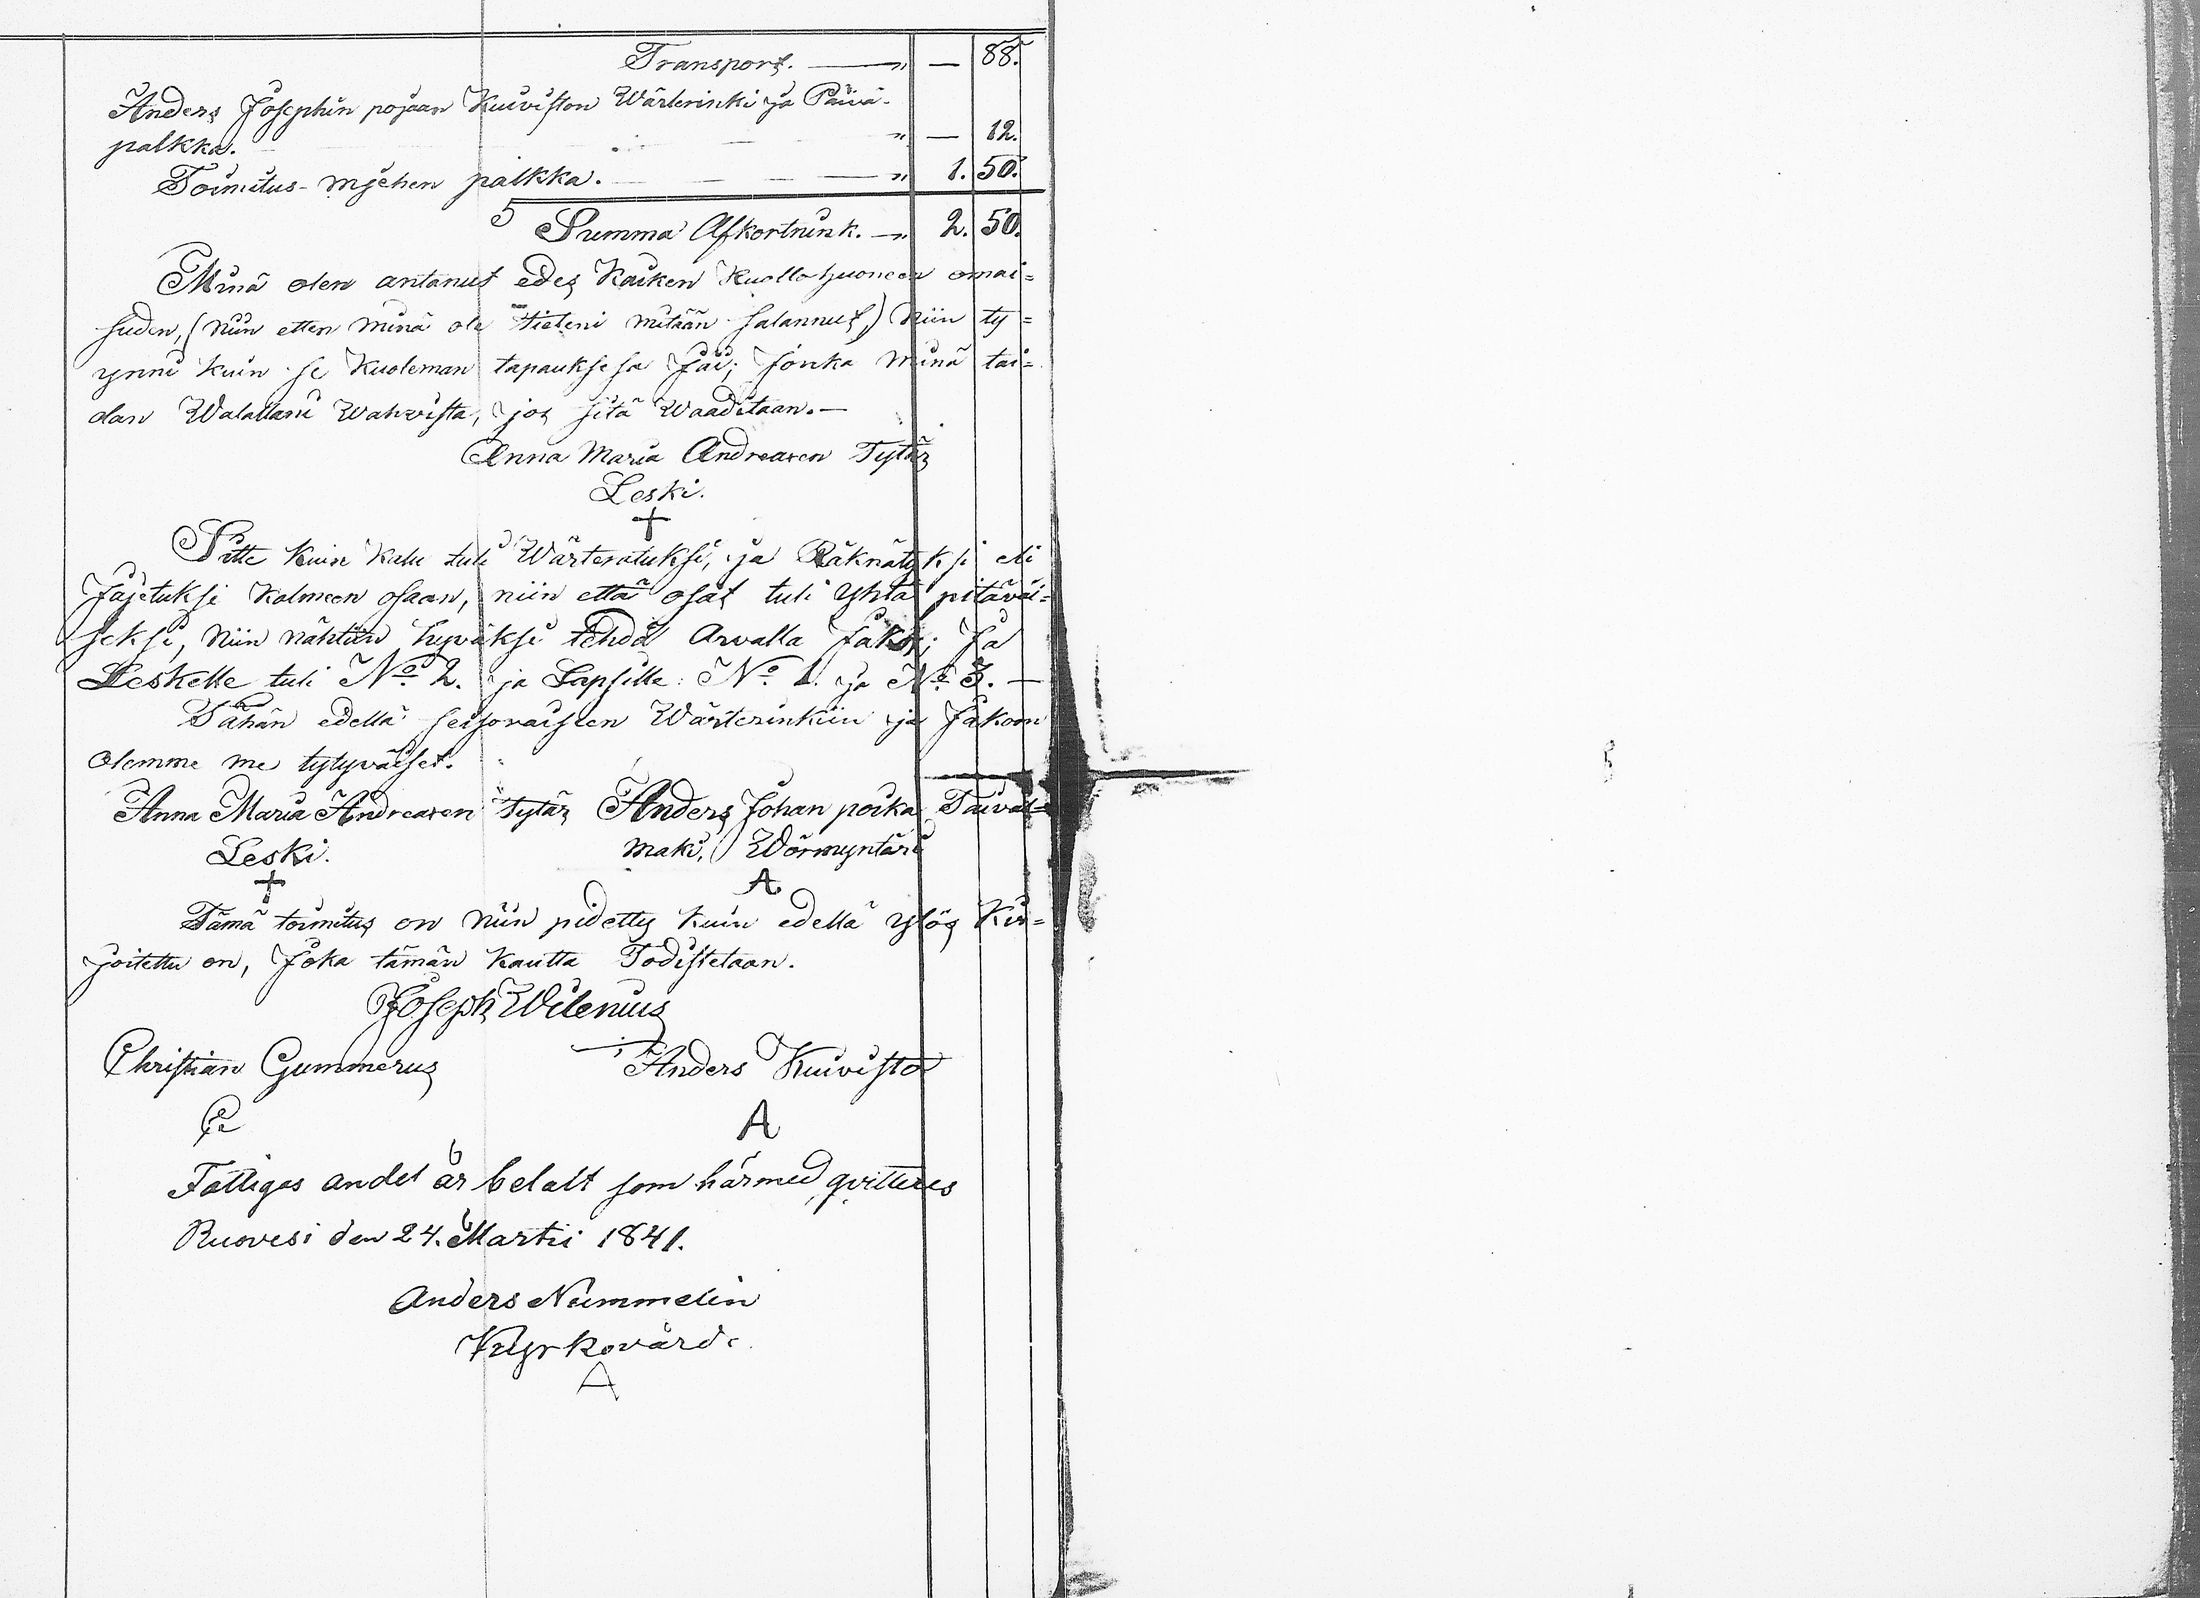 Transport. — „ — 88.
Anders Josephin pojaan Kuiviston Wärterinki ja Päivä-
palkka. „ — 12.
Toimitus-mjehen palkka. — „ 1. 50.
5 Summa Afkortnink. — „ 2. 50.
Minä olen antanut edes Kaiken Kuollohuoneen omai=
suden, (niin etten minä ole tieteni mitään salannut,) niin ty=
ynni kuin se Kuoleman tapauksesa Jäi; Jonka minä tai=
dan Walallani Wahvista, jos sitä Waaditaan. —
Anna Maria Andreaxen Tytär
Leski.
+
Sitte kuin Kalu tuli Wärteratuksi, ja Räknätyksi eli
Jajetuksi Kolmeen osaan, niin että osat tuli Yhtä pitäväi=
seksi, Niin nähtiin hyväksi tehdä Arvalla Jako; Ja
Leskelle tuli No. 2. ja Lapsille No. 1. ja No. 3. —
Tähän edellä seisovaiseen Wärterinkiin ja Jakoon
Olemme me tytyväiset.
Anna Maria Andreaxen Tytär Anders Johan poika Taival=
Leski. maki, Wörmyntäri
+ A
Tämä toimitus on niin pidetty kuin edellä Ylös Kir=
joitettu on, Joka tämän kautta Todistetaan.
Joseph Wilenius
Christian Gummerus Anders Kuivisto
A
Fattigas andel är betalt som härmed qvitteres
Ruovesi den 24. Martii 1841.
Anders Nummelin
Kyrkovärd.
A